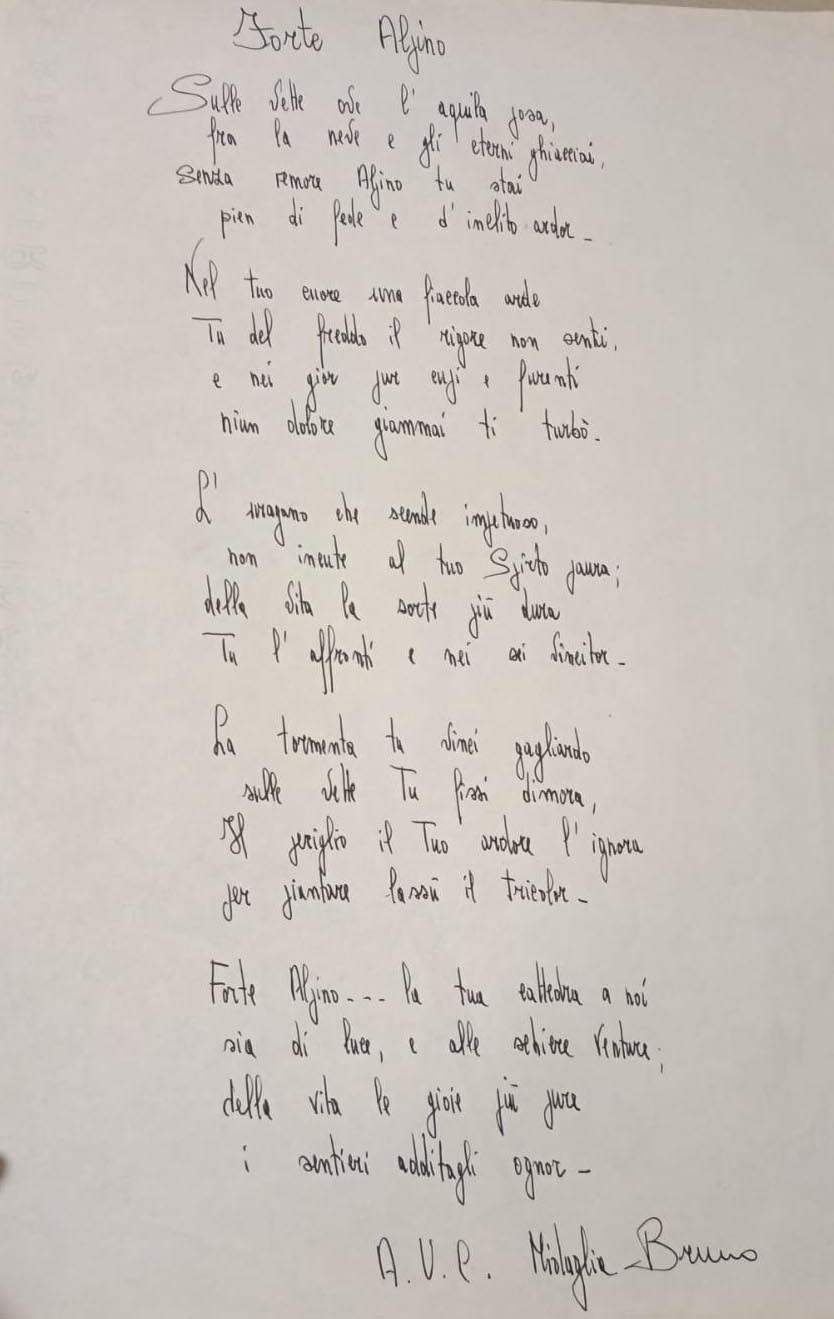 Forte Alpino
Sulle vette ove l'aquila posa,
fra la neve e gli eterni ghiacciai,
Senza remore Alpino tu stai
pien di fede e d'inclito ardor -
Nel tuo cuore una fiaccola arde
Tu del freddo il rigore non senti,
e nei gior pur cupi e furenti
niun dolore giammai ti turbò -
L'uragano che scende impetuoso,
non incute al tuo Spirto paura;
della vita la sorte più dura
Tu l'affronti e nei sei vincitor -
La tormenta tu vinci gagliardo
sulle vette Tu fissi dimora,
Il periglio il Tuo ardore l'ignora
per piantare lassù il tricolor -
Forte Alpino---- la tua cattedra a noi
sia di luce, e alle schiere venture;
della vita le gioie più pure
i sentieri additagli ognor -
A.V.C. Bruno